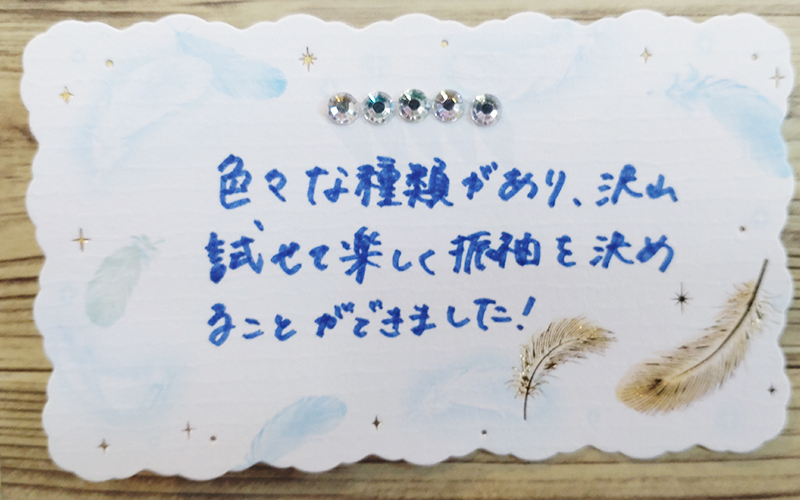 色々な種類があり、沢山
試せて楽しく振袖を決め
ることができました！